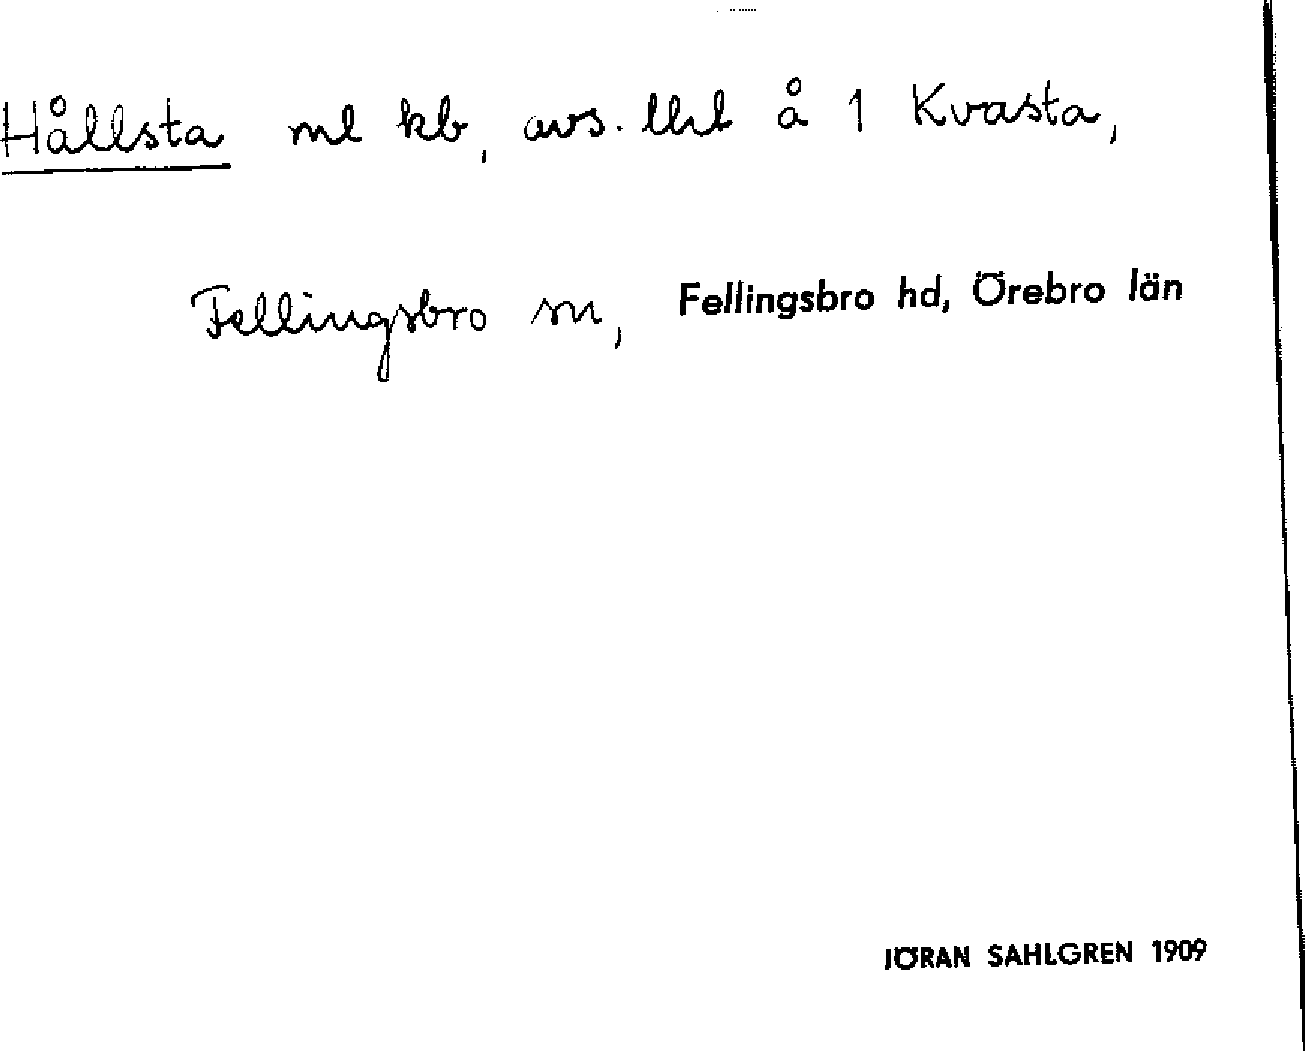 Hållsta ml kb, avs. lht å 1 Kvasta,
Fellingsbro sn, Fellingsbro hd, Örebro län
JÖRAN SAHLGREN 1909